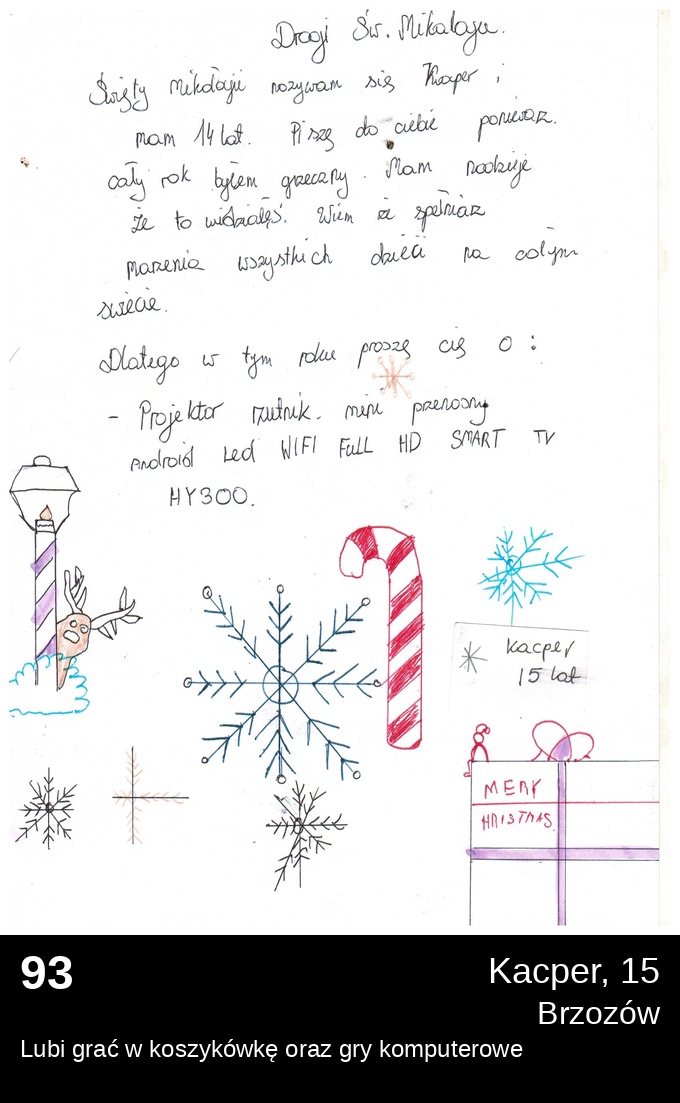 Drogi Św. Mikołaju.
Święty Mikołaju nazywam się Kacper i
mam 14 lat. Piszę do ciebie ponieważ
cały rok byłem grzeczny. Mam nadzieję
że to widziałeś. Wiem że spełniasz
marzenia wszystkich dzieci na całym
świecie.
Dlatego w tym roku proszę cię o :
- Projektor rzutnik. mini przenośny
Android Led WIFI FULL HD SMART TV
HY300.
Kacper
15 lat
MERY
HRISTMAS
93
Kacper, 15
Brzozów
Lubi grać w koszykówkę oraz gry komputerowe